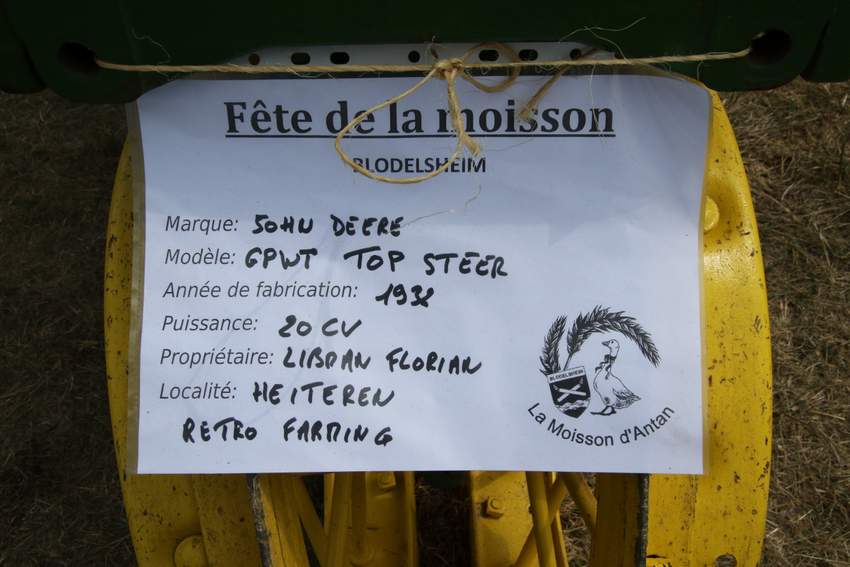 Fête de la moisson
BLODELSHEIM
Marque: JOHN DEERE
Modèle: GPWT TOP STEER
Année de fabrication: 1932
Puissance: 20 CV
Propriétaire: LIBMAN FLORIAN
Localité: HEITEREN
RETRO FARMING
BLODELSHEIM
La Moisson d'Antan